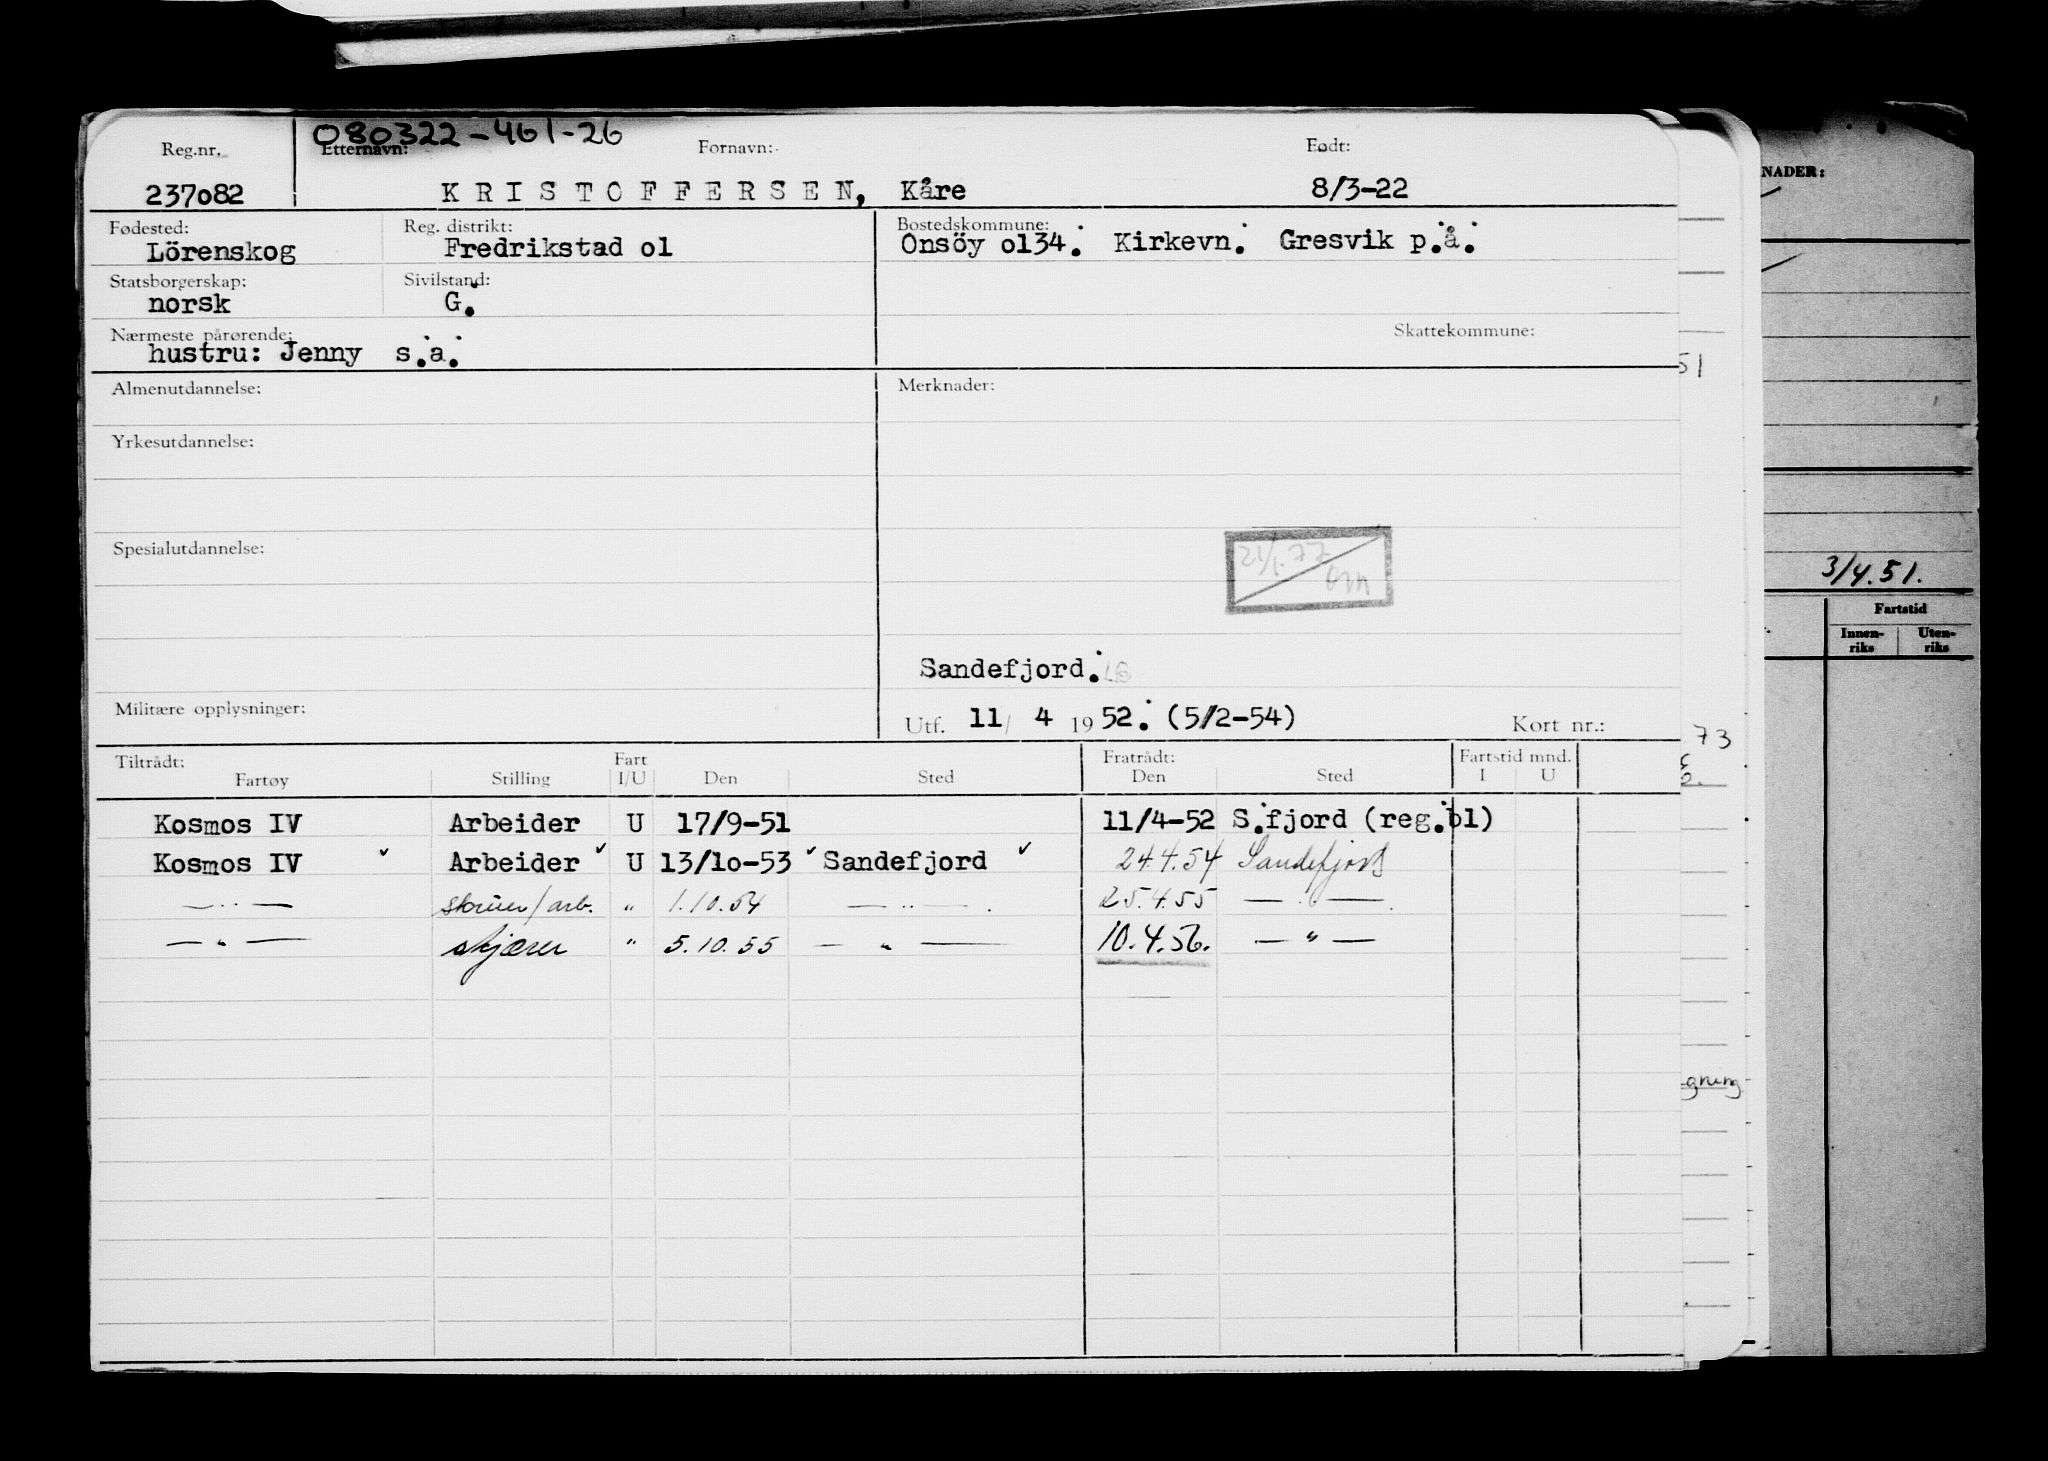 080322-461-26
Reg.nr. Etternavn: Fornavn: Født:
237o82 KRISTOFFERSEN, Kåre 8/3-22
Fødested: Reg. distrikt: Bostedskommune:
Lörenskog Fredrikstad o1 Onsöy o134. Kirkevn. Gresvik p.å.
Statsborgerskap: Sivilstand:
norsk G.
Nærmeste pårørende: Skattekommune:
hustru: Jenny s.a.
Almenutdannelse: Merknader:
Yrkesutdannelse:
Spesialutdannelse:
21/1.77
Sandefjord.
Militære opplysninger: Utf. 11/ 4 1952. (5/2-54) Kort nr.:
Tiltrådt: Fart Fratrådt: Fartstid mnd.
Fartøy Stilling I/U Den Sted Den Sted I U
Kosmos IV Arbeider U 17/9-51 11/4-52 S.fjord (reg.o1)
Kosmos IV ✓ Arbeider ✓ U 13/1o-53 ✓ Sandefjord ✓ 24.4.54 Sandefjord
— " — arb. " 1.10.54 — " — . 25.4.55 — " — .
— " — skjærer " 5.10.55 — " — 10.4.56. — " —
NADER:
51
3/4.51.
Fartstid
Innen-riks Uten-riks
73
gning